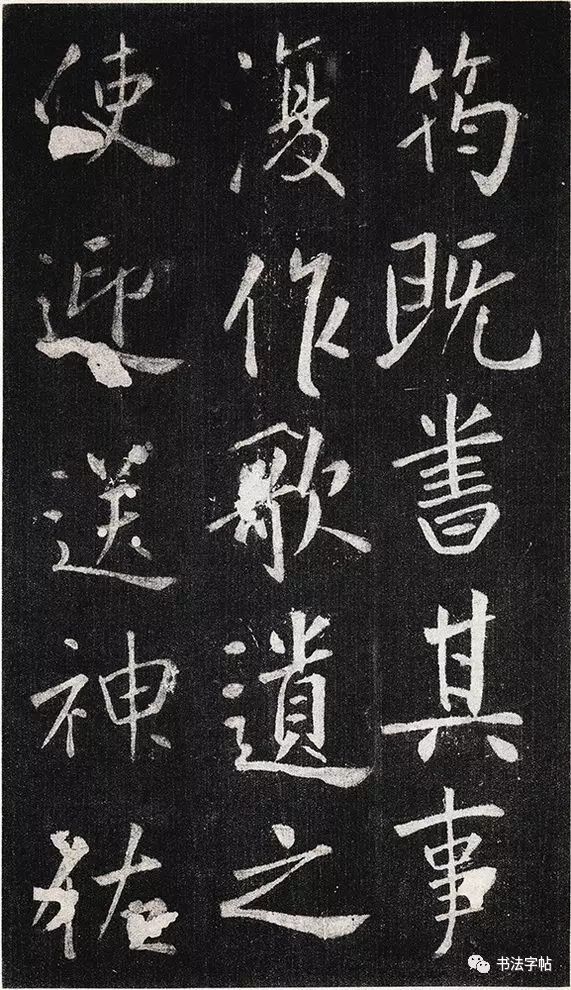 筠既書其事
復作歌遺之
使迎送神祐
书法字帖